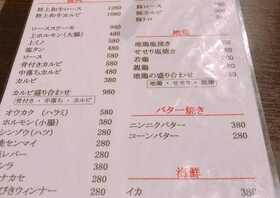 陸上和牛ロース 1280
陸上和牛カルビ 980
ロースステーキ 980
上ホルモン(大腸) 380
上ミノ 580
塩タン 580
ロース 580
骨付きカルビ 580
中落ちカルビ 480
カルビ 580
カルビ盛り合わせ 980
骨付き・中落ち・カルビ
オウカク(ハラミ) 380
ホルモン(小腸) 380
シンゾウ(ハツ) 280
センマイ 280
レバー 280
280
ナカセ 280
びきウィンナー 280
豚カルビ
豚トロ
地鶏
地鶏塩焼き
せせり塩焼き
若鶏
親鶏
地鶏の盛り合わせ
地鶏・せせり・若鶏
バター焼き
ニンニクバター 380
コーンバター 280
海鮮
イカ 380